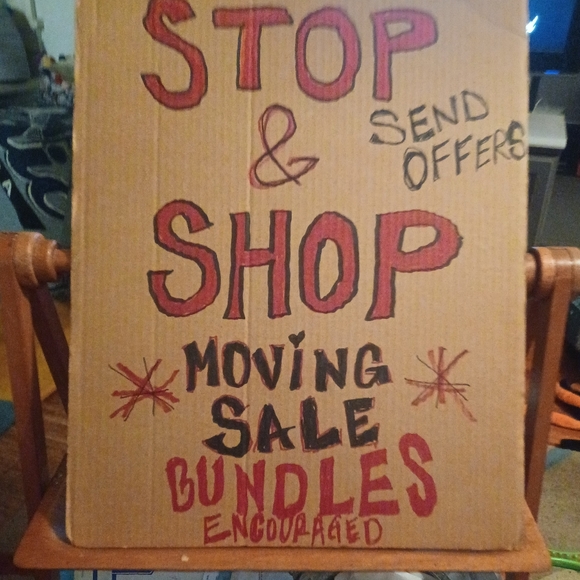 STOP
&
SEND
OFFERS
SHOP
MOViNG
SALE
BUNDLES
ENCOURAGED